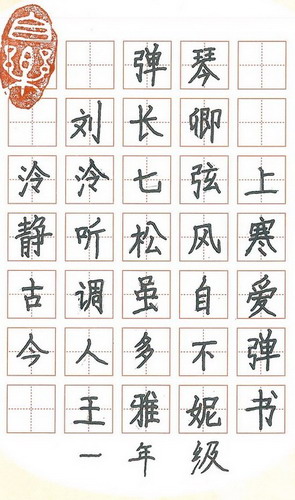 弹琴
刘长卿
泠泠七弦上
静听松风寒
古调虽自爱
今人多不弹
王雅妮书
一年级